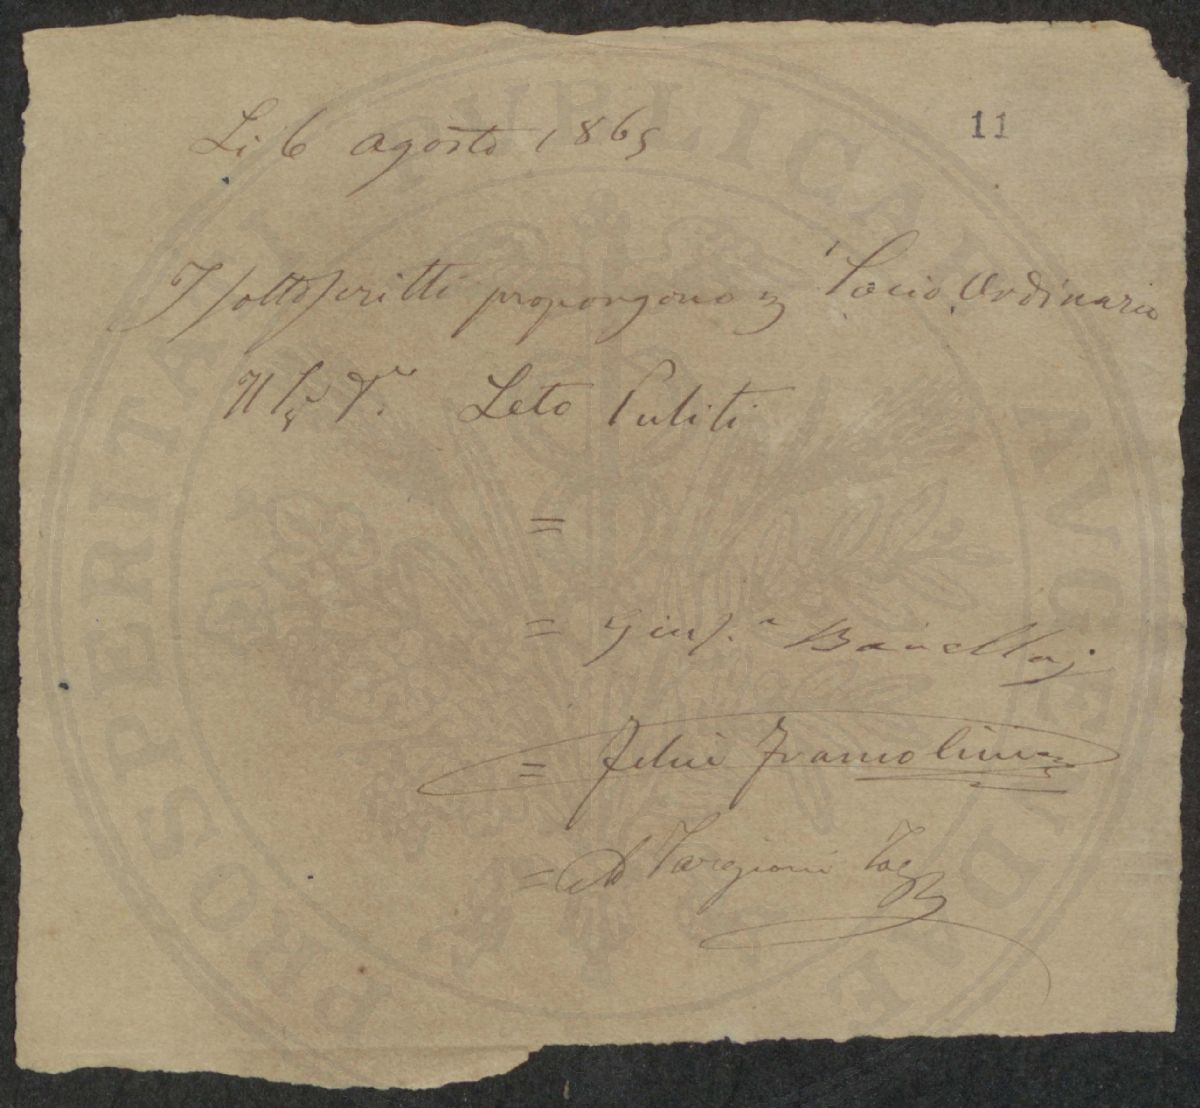 11
Li 6 agosto 1865
I sottoscritti propongono Socio Ordinario
Il Leto Puliti
=
= Gius.
= Felice Francolini
= Ad Targioni Tozz
PROSPERITATI PVBLICAE AVGENDAE